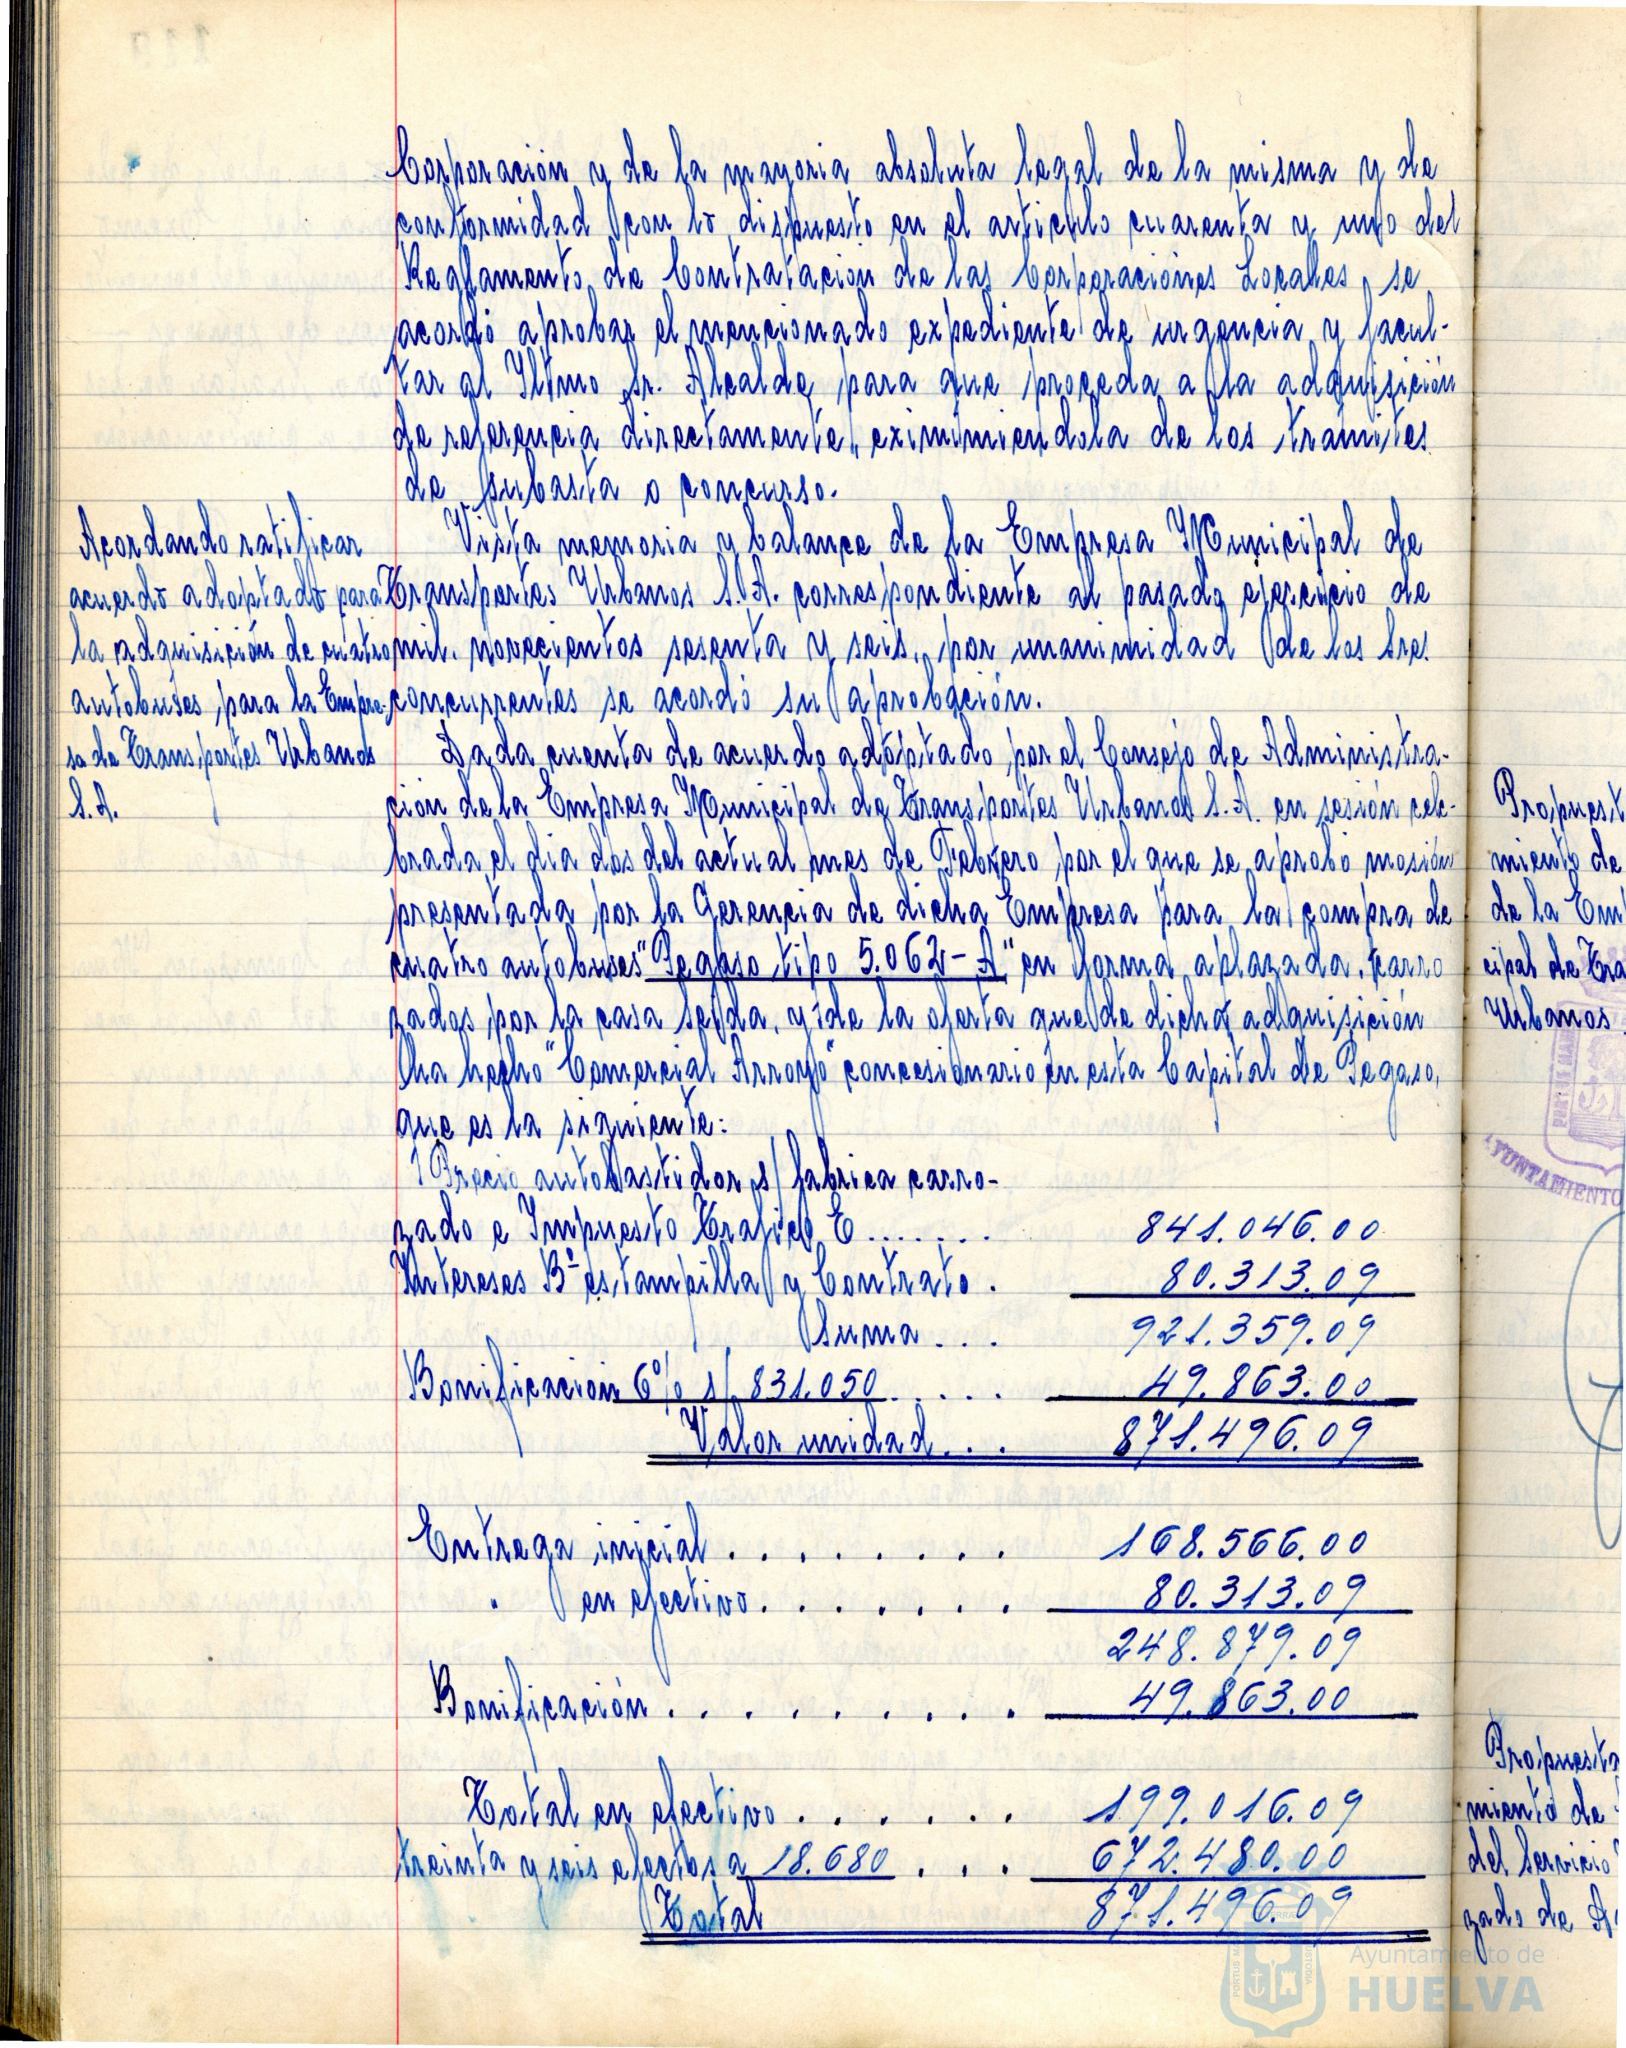 Corporación y de la mayoria absoluta legal de la misma y de
conformidad con lo dispuesto en el articulo cuarenta y uno del
Reglamento de Contratación de las Corporaciónes Locales, se
acordó aprobar el mencionado expediente de urgencia y facul-
tar al Iltmo Sr. Alcalde para que proceda a la adquisición
de referencia directamente, eximimiendola de los tramites
de subasta o concurso.
Acordando ratificar
acuerdo adoptado para
la adquisición de cuatro
autobuses para la Empre-
sa de Transportes Urbanos
S.A.
Vista memoria y balance de la Empresa Municipal de
Transportes Urbanos S.A. correspondiente al pasado ejercicio de
mil novecientos sesenta y seis, por unanimidad de los Sres.
concurrentes se acordó su aprobación.
Dada cuenta de acuerdo adoptado por el Consejo de Administra-
ción de la Empresa Municipal de Transportes Urbanos S.A. en sesión cele-
brada el dia dos del actual mes de Febrero por el que se aprobo mosión
presentada por la Gerencia de dicha Empresa para la compra de
cuatro autobuses "Pegaso tipo 5.062-A" en forma aplazada, carro
zados por la casa Seida, y de la oferta que de dicha adquisición
ha hecho "Comercial Arroyo" concesionario en esta Capital de Pegaso,
que es la siguiente:
1 Precio autobastidor s/ fabrica carro-
zado e Impuesto Trafico E ....... 841.046.00
Intereses Bº estampilla y Contrato . 80.313.09
Suma ... 921.359.09
Bonificación 6% s/ 831.050 ..... 49.863.00
Valor unidad ... 871.496.09
Entrega inicial ........ 168.566.00
" en efectivo ....... 80.313.09
248.879.09
Bonificación .......... 49.863.00
Total en efectivo ...... 199.016.09
treinta y seis efectos a 18.680 ... 672.480.00
Total 871.496.09
Propuest
miento de
de la Emp
cipal de Tra
Urbanos
AYUNTAMIENTO
Propuesta
miento de
del Servicio
zado de A
Ayuntamiento de
HUELVA